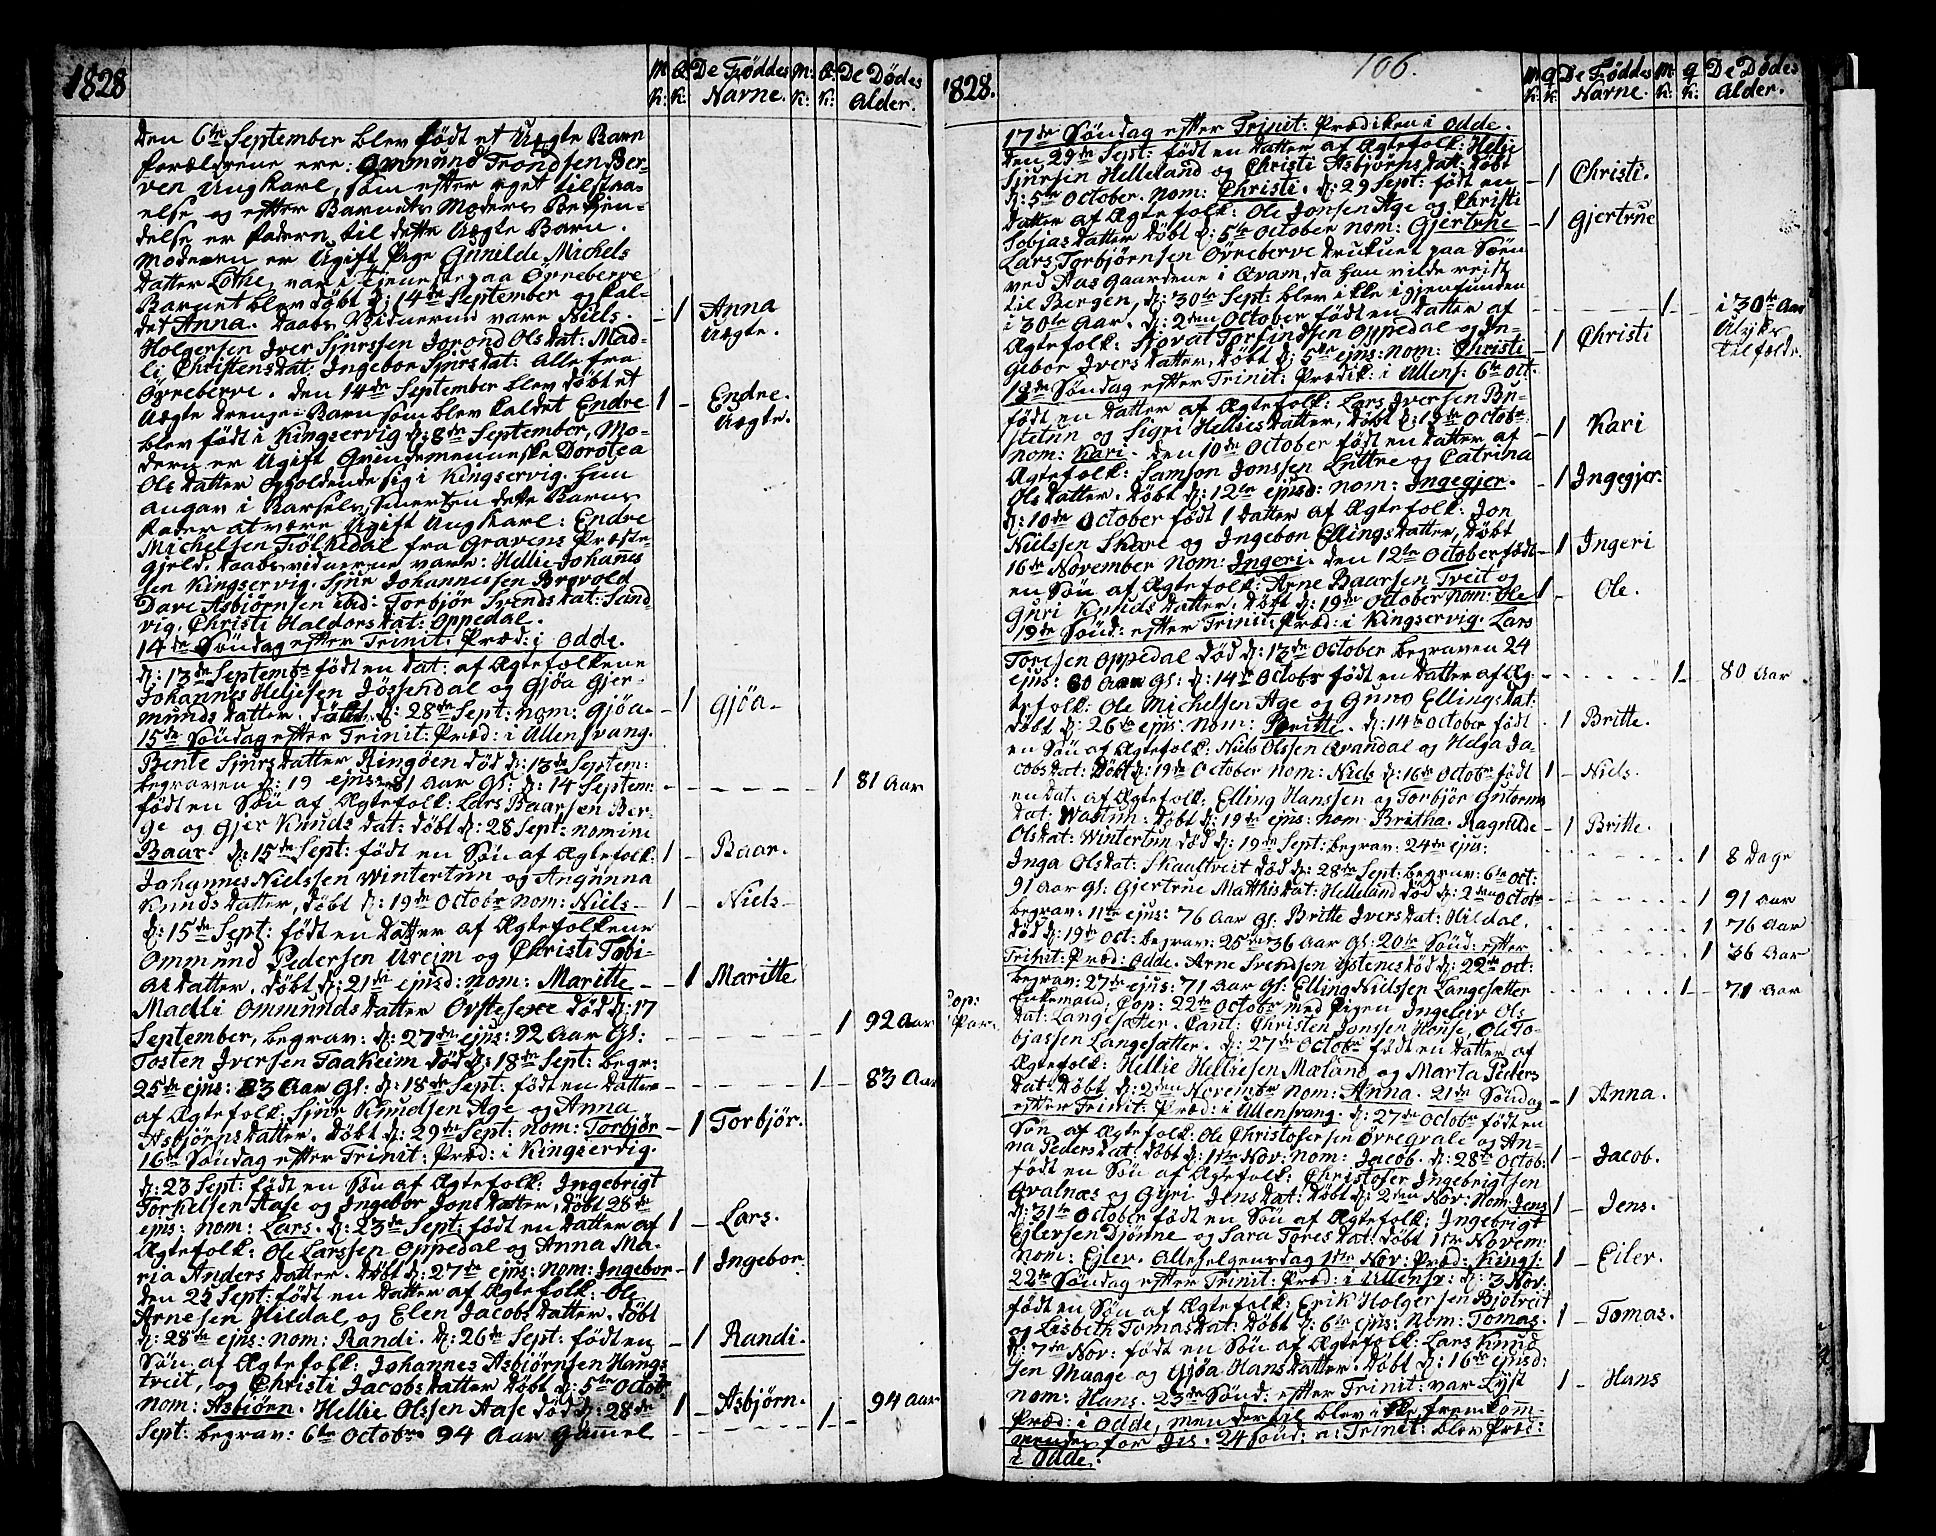 1828
M K: Q: K: De Føddes Navne. M: K: Q: K: De Dødes Alder.
Den 6te September blev født et Uægte Barn
forældrene ere: Ommund Trondsen Ber-
ven Ungkarl, som efter eget tilstaa-
else og efter Barnets Moders Bekjen-
delse er fadern til dette Uægte Barn.
Moderen er Ugift Pige Gunilde Michels
datter Lothe, var i Tjeneste paa Ørneberve
Barnet blev døbt d: 14de September og kal-
det Anna. Daabs Vidnerne vare Niels
Holgersen Iver Sjurssen Jorond Olsdat: Mad-
li Christensdat: Ingebor Sjursdat: Alle fra
Ørreberve. Den 14de September blev døbt et
Uægte drenge-Barn som blev kaldet Endre
blev født i Kingservig d: 8de September, Mo-
dern er Ugift Qvindemenneske Dorotea
Ols datter opholdende sig i Kingservig. hun
angav i Barsels Smerten dette Barns
fader at være Ugift Ungkarl: Endre
Michelsen Følkedal fra Gravens Præste-
gjeld. Daabsvidnerne vare: Hellie Johannes
sen Kingservig. Sjur Johannessen Brovold
Dave Asbjørnsen ibid: Torbjør Svendsdat: Sand-
vig. Christi Haldorsdat: Oppedal.
14de Søndag efter Trinit: Præd: i Odde.
d: 13de Septembr født en dat: af Ægtefolkene
Johannes Heljesen Jøssendal og Gjøa Gjer-
munds datter. døbt d: 28de Sept: nom: Gjøa
15de Søndag efter Trinit: Præd: i Ullensvang.
Bente Sjursdatter Ringøen død d: 13de Septem:
begraven d: 19 ejus: 81 Aar Gl: d: 14 Septem:
født en Søn af Ægtefolk: Lars Baarsen Ber-
ge og Gjer Knudsdat: døbt d: 28 Sept: nomine
Baar. d: 15de Sept: født en Søn af Ægtefolk:
Johannes Nielssen Wintertun og Angunna
Knuds datter, døbt d: 19de Octobr nom: Niels
d: 15de Sept: født en Datter af Ægtefolkene
Ommund Pedersen Ureim og Christi Tobi-
as datter, døbt d: 21de ejusd: nom: Maritte
Madli Ommundsdatter Ovstese død d: 17
September, begrav: d: 27de ejus: 92 Aar Gl:
Tosten Iversen Taakeim død d: 18de Sept: begr:
25de ejus: 83 Aar Gl: d: 18de Sept: født en Datter
af Ægtefolk: Sjur Knudsen Age og Anna
Asbjørnsdatter. døbt d: 29de Sept: nom: Torbjør
16de Søndag efter Trinit: Præd: i Kingservig.
d: 23 Sept: født en Søn af Ægtefolk: Ingebrigt
Torkelsen Aase og Ingebor Jonsdatter, døbt 28de
ejus: nom: Lars. d: 23de Sept: født en datter af
Ægtefolk: Ole Larssen Oppedal og Anna Ma-
ria Anders datter. døbt d: 27de ejus: nom: Ingebor
den 25 Sept: født en Datter af Ægtefolk: Ole
Arnesen Hildal og Elen Jacobs datter. døbt
d: 28de ejus: nom: Randi. d: 26de Sept: født en
Søn af Ægtefolk: Johannes Asbjørnsen Hangs
treit, og Christi Jacobsdatter døbt d: 5te Octob:
nom: Asbjørn. Hellie Olssen Aase død d: 28de
Sept: begrav: 6te Octobr 94 Aar Gamel
1 Anna Uægte.
1 Endre. Uægte.
1 Gjøa
1 81 Aar
1 Baar.
1 Niels
1 Maritte
1 92 Aar
1 83 Aar
1 Torbjør.
1 Lars.
1 Ingebor
1 Randi.
1 Asbjørn.
1 94 Aar
1828.
106.
M: K: Q K: De Føddes Navne. M: K: Q K: De Dødes Alder.
17de Søndag efter Trinit: Prædiken i Odde.
den 29de Sept: født en datter af Ægtefolk: Helje
Sjursen Helleland og Christi Asbjørnsdat: døbt
d: 5te October. nom: Christi. d: 29 Sept: født en
datter af Ægtefolk: Ole Jonsen Age og Christi
Tobjasdatter døbt d: 5te October nom: Gjertrue
Lars Torbjørnsen Øvreberve druknet paa Søen
ved Aas Gaardene i Qvam, da han vilde reist
til Bergen, d: 30te Sept: blev ikke igjenfunden
i 30te Aar. d: 2den October født en datter af
Ægtefolk: Sjovat Torfindsen Oppedal og In-
gebor Ivers datter, døbt d: 5te ejus: nom: Christi
18de Søndag efter Trinit: Prædik: i Ullens: 6te Oct:
født en datter af Ægtefolk: Lars Iversen Bu-
stetun og Sigri Hellies datter, døbt d: 12te Octobr:
nom: Kari. den 10de October født en datter af
Ægtefolk: Samson Jonssen Luttre og Catrina
Ols datter. døbt d: 12te ejusd: nom: Ingegjer.
d: 10de October født 1 datter af Ægtefolk: Jon
Nielssen Skare og Ingebor Ellings datter, døbt
16de November nom: Ingeri. den 12te October født
en Søn af Ægtefolk: Arne Baarsen Treit og
Guri Knuds datter. døbt d: 19de October nom: Ole
19de Sønd: efter Trinit: Præd: i Kingservig. Lars
Toresen Oppedal død d: 13de October begraven 24
ejus: 80 Aar Gl: d: 14de Octobr født en datter af Æg-
tefolk: Ole Michelsen Age og Guro Ellingsdat:
døbt d: 26de ejus: nom: Britte. d: 14de October født
en Søn af Ægtefolk: Niels Olssen Qvandal og Helga Ja-
cobsdat: døbt d: 19de October nom: Niels d: 16de Octobr født
en dat: af Ægtefolk: Elling Hanssen og Torbjør Gutorms
dat: Wastun: døbt d: 19de ejus: nom: Britha. Ragnilde
Olsdat: Wintertun død d: 19de Sept: begrav: 24de ejus:
Inga Olsdat: Skauftveit død d: 28de Sept: begrav: 6te Oct:
91 Aar Gl: Gjertrue Matthisdat: Helleland død d: 2den Octobr
begrav: 11te ejus: 76 Aar Gl: Britte Iversdat: Hildal,
død d: 19de Oct: begrav: 25de 36 Aar Gl: 20de Sønd: efter
Trinit: Præd: Odde. Arne Svendsen Ystenes død d: 22de Oct:
begrav: 27de ejus: 71 Aar Gl: Elling Nielssen Langesætter
Enkemand, Cop: 22de Octobr med Pigen Ingeleiv Ols
dat: Langesætter. Caut: Christen Jonssen House, Ole To-
bjassen Langesætter. d: 27de Octobr født en datter af
Ægtefolk: Hellie Helliesen Mæland og Marta Peders
dat: døbt d: 2den Novembr nom: Anna. 21de Søndag
efter Trinit: Præd: i Ullensvang. d: 27de Octobr født en
Søn af Ægtefolk: Ole Christofersen Ørregvale og An-
na Pedersdat: døbt d: 1ste Nov: nom: Jacob. d: 28de Octob:
født en Søn af Ægtefolk: Christofer Ingebrigtsen
Qvalnæs og Gyri Jensdat: døbt d: 2den Nov: Nom: Jens
d: 31te October født en Søn af Ægtefolk: Ingebrigt
Ejlersen Djønne og Sara Toresdat: døbt 1ste Novem:
Nom: Ejler. Allehelgensdag 1ste Nov: Præd: Kings:
22de Søndag efter Trinit: Præd: i Ullensv: d: 3 Nov:
født en Søn af Ægtefolk: Erik Holgersen Bjotveit
og Lisbeth Tomasdat: døbt d: 6te ejus: Nom: Tomas.
d: 7de Nov: født en Søn af Ægtefolk: Lars Knud
sen Maage og Gjøa Hansdatter. døbt d: 16de ejusd:
nom: Hans. 23de Sønd: efter Trinit: var Lyst
Præd: i Odde, men dertil blev ikke fremkom-
mendes for Jis. 24 Sønd: e: Trinit: blev Præd:
i Odde.
Cop: 1 Par.
1 Christi.
1 Gjertrue
1 i 30te Aar Ulyks tilfælde.
1 Christi
1 Kari
1 Ingegjer.
1 Ingeri
1 Ole.
1 80 Aar
1 Britte.
1 Niels.
1 Britte.
1 8 Dage
1 91 Aar
1 76 Aar
1 36 Aar
1 71 Aar
1 Anna.
1 Jacob.
1 Jens.
1 Eiler.
1 Tomas.
1 Hans